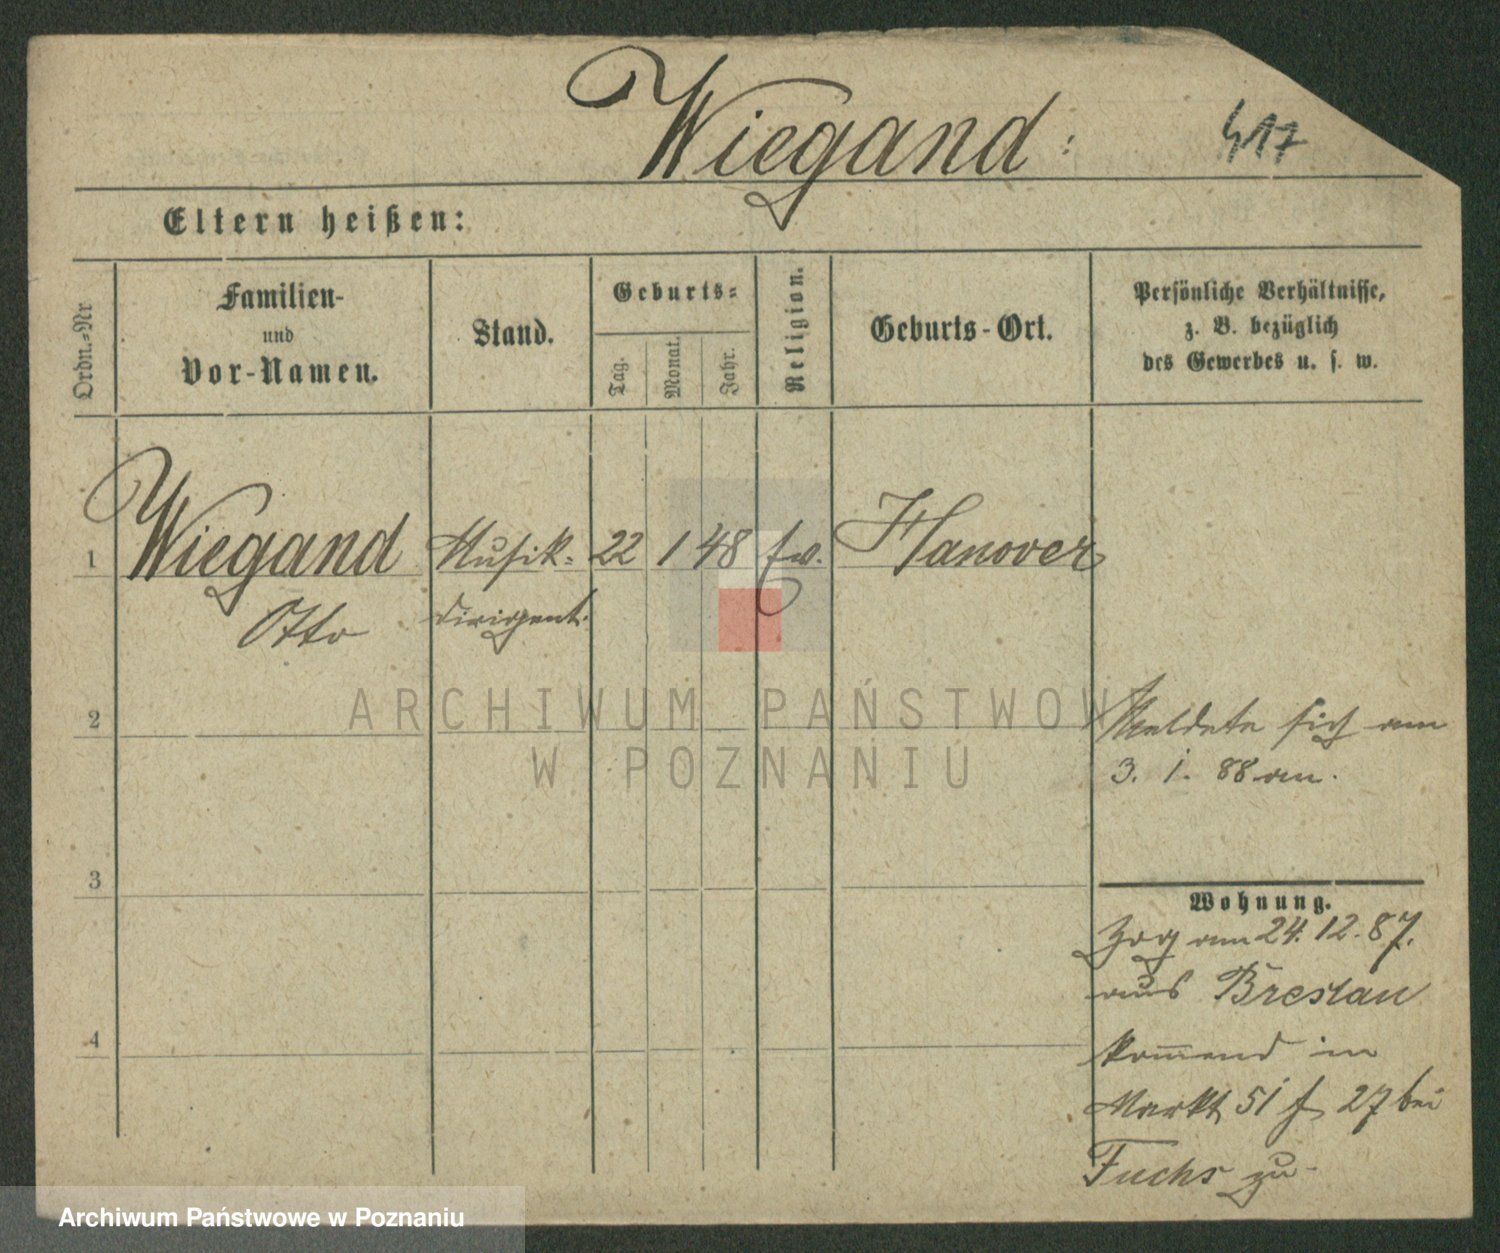 Wiegand:
417
Eltern heißen:
Ordn.-Nr
Familien-
und
Vor-Namen.
Stand.
Geburts-
Tag.
Monat.
Jahr.
Religion.
Geburts-Ort.
Persönliche Verhältnisse,
z. B. bezüglich
des Gewerbes u. s. w.
1 Wiegand Musik- 22 1 48 Ev. Hanover
Otto dirigent.
ARCHIWUM PAŃSTWOWE
W POZNANIU
2
Meldete sich am
3. 1. 88 an.
3
Wohnung.
Zog am 24. 12. 87.
aus Breslau
kom̄end in
4
Markt 51 27 bei
Fuchs zu.
Archiwum Państwowe w Poznaniu